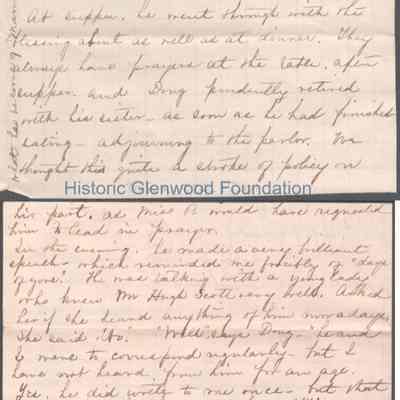 At supper, he went through with the
blessing about as well as at dinner. They
always have prayers at the table, after
supper. and Doug prudently retired
with his sister - as soon as he had finished
eating - adjourning to the parlor. We
thought this quite a stroke of policy on
Historic Glenwood Foundation
his part, as Miss B would have requested
him to lead in prayer.
In the evening, he made a very brilliant
speech which reminded me forcibly of "days
of yore". He was talking with a young lady
who knew Mr Hugh Scott very well. Asked
her if she heard anything of him now adays.
She said "No." "Well," says Doug - "he and
I were to correspond regularly - but I
have not heard from him for an age.
Yes, he did write to me once - but that